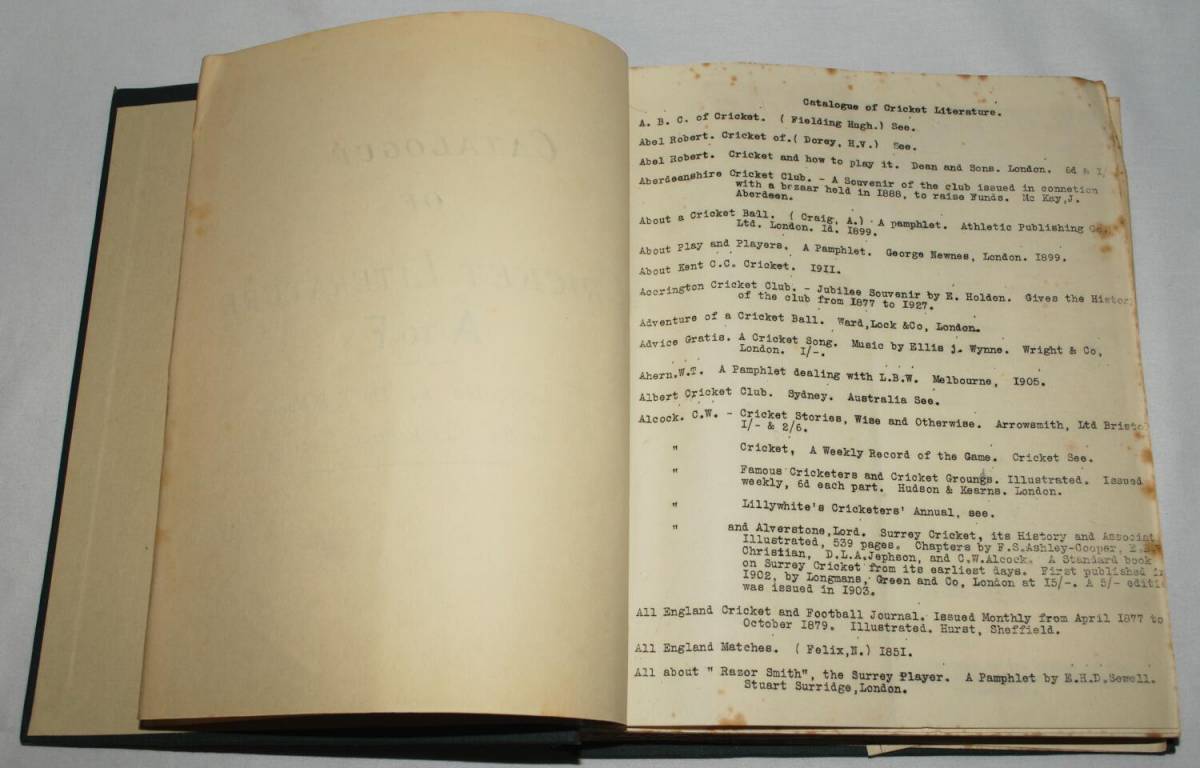 CATALOGUE
OF
CRICKET LITERATURE
A to F
Catalogue of Cricket Literature.
A. B. C. of Cricket. ( Fielding Hugh.) See.
Abel Robert. Cricket of.( Dorey, H.V.) See.
Abel Robert. Cricket and how to play it. Dean and Sons. London. 6d & I/-
Aberdeenshire Cricket Club. - A Souvenir of the club issued in connetion
with a bazaar held in I888, to raise Funds. Mc Kay,J.
Aberdeen.
About a Cricket Ball. ( Craig, A.) A pamphlet. Athletic Publishing Co.
Ltd. London. Id. I899.
About Play and Players. A Pamphlet. George Newnes, London. I899.
About Kent C.C. Cricket. I9II.
Accrington Cricket Club. - Jubilee Souvenir by E. Holden. Gives the Histor
of the club from I877 to I927.
Adventure of a Cricket Ball. Ward,Lock &Co, London.
Advice Gratis. A Cricket Song. Music by Ellis j. Wynne. Wright & Co,
London. I/-.
Ahern.W.T. A Pamphlet dealing with L.B.W. Melbourne, I905.
Albert Cricket Club. Sydney. Australia See.
Alcock. C.W. - Cricket Stories, Wise and Otherwise. Arrowsmith, Ltd Bristol
I/- & 2/6.
" Cricket, A Weekly Record of the Game. Cricket See.
" Famous Cricketers and Cricket Grounds. Illustrated. Issued
weekly, 6d each part. Hudson & Kearns. London.
" Lillywhite's Cricketers' Annual, see.
" and Alverstone,Lord. Surrey Cricket, its History and Associat
Illustrated, 539 pages. Chapters by F.S.Ashley-Cooper, E.B.
Christian, D.L.A.Jephson, and C.W.Alcock. A Standard book
on Surrey Cricket from its earliest days. First published in
I902, by Longmans, Green and Co, London at I5/-. A 5/- editi
was issued in I903.
All England Cricket and Football Journal. Issued Monthly from April I877 to
October I879. Illustrated. Hurst, Sheffield.
All England Matches. ( Felix,N.) I85I.
All about " Razor Smith", the Surrey Player. A Pamphlet by E.H.D.Sewell.
Stuart Surridge,London.